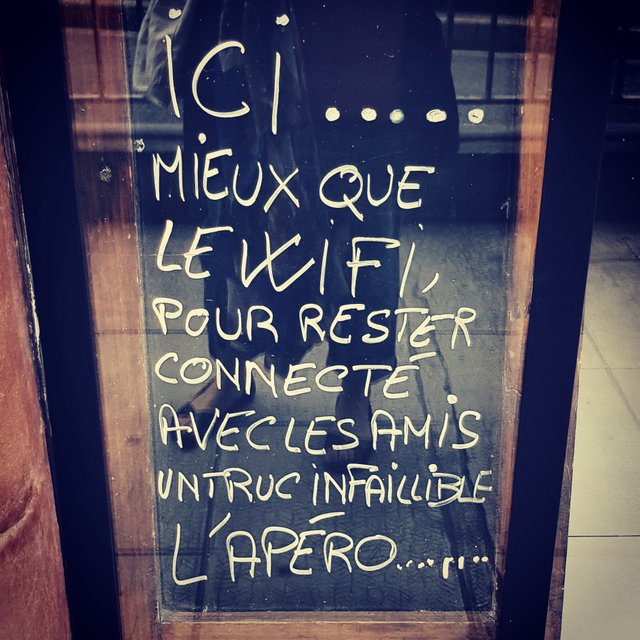 ICI ......
MIEUX QUE
LE WIFI,
POUR RESTER
CONNECTÉ
AVEC LES AMIS
UN TRUC INFAILLIBLE
L'APÉRO........